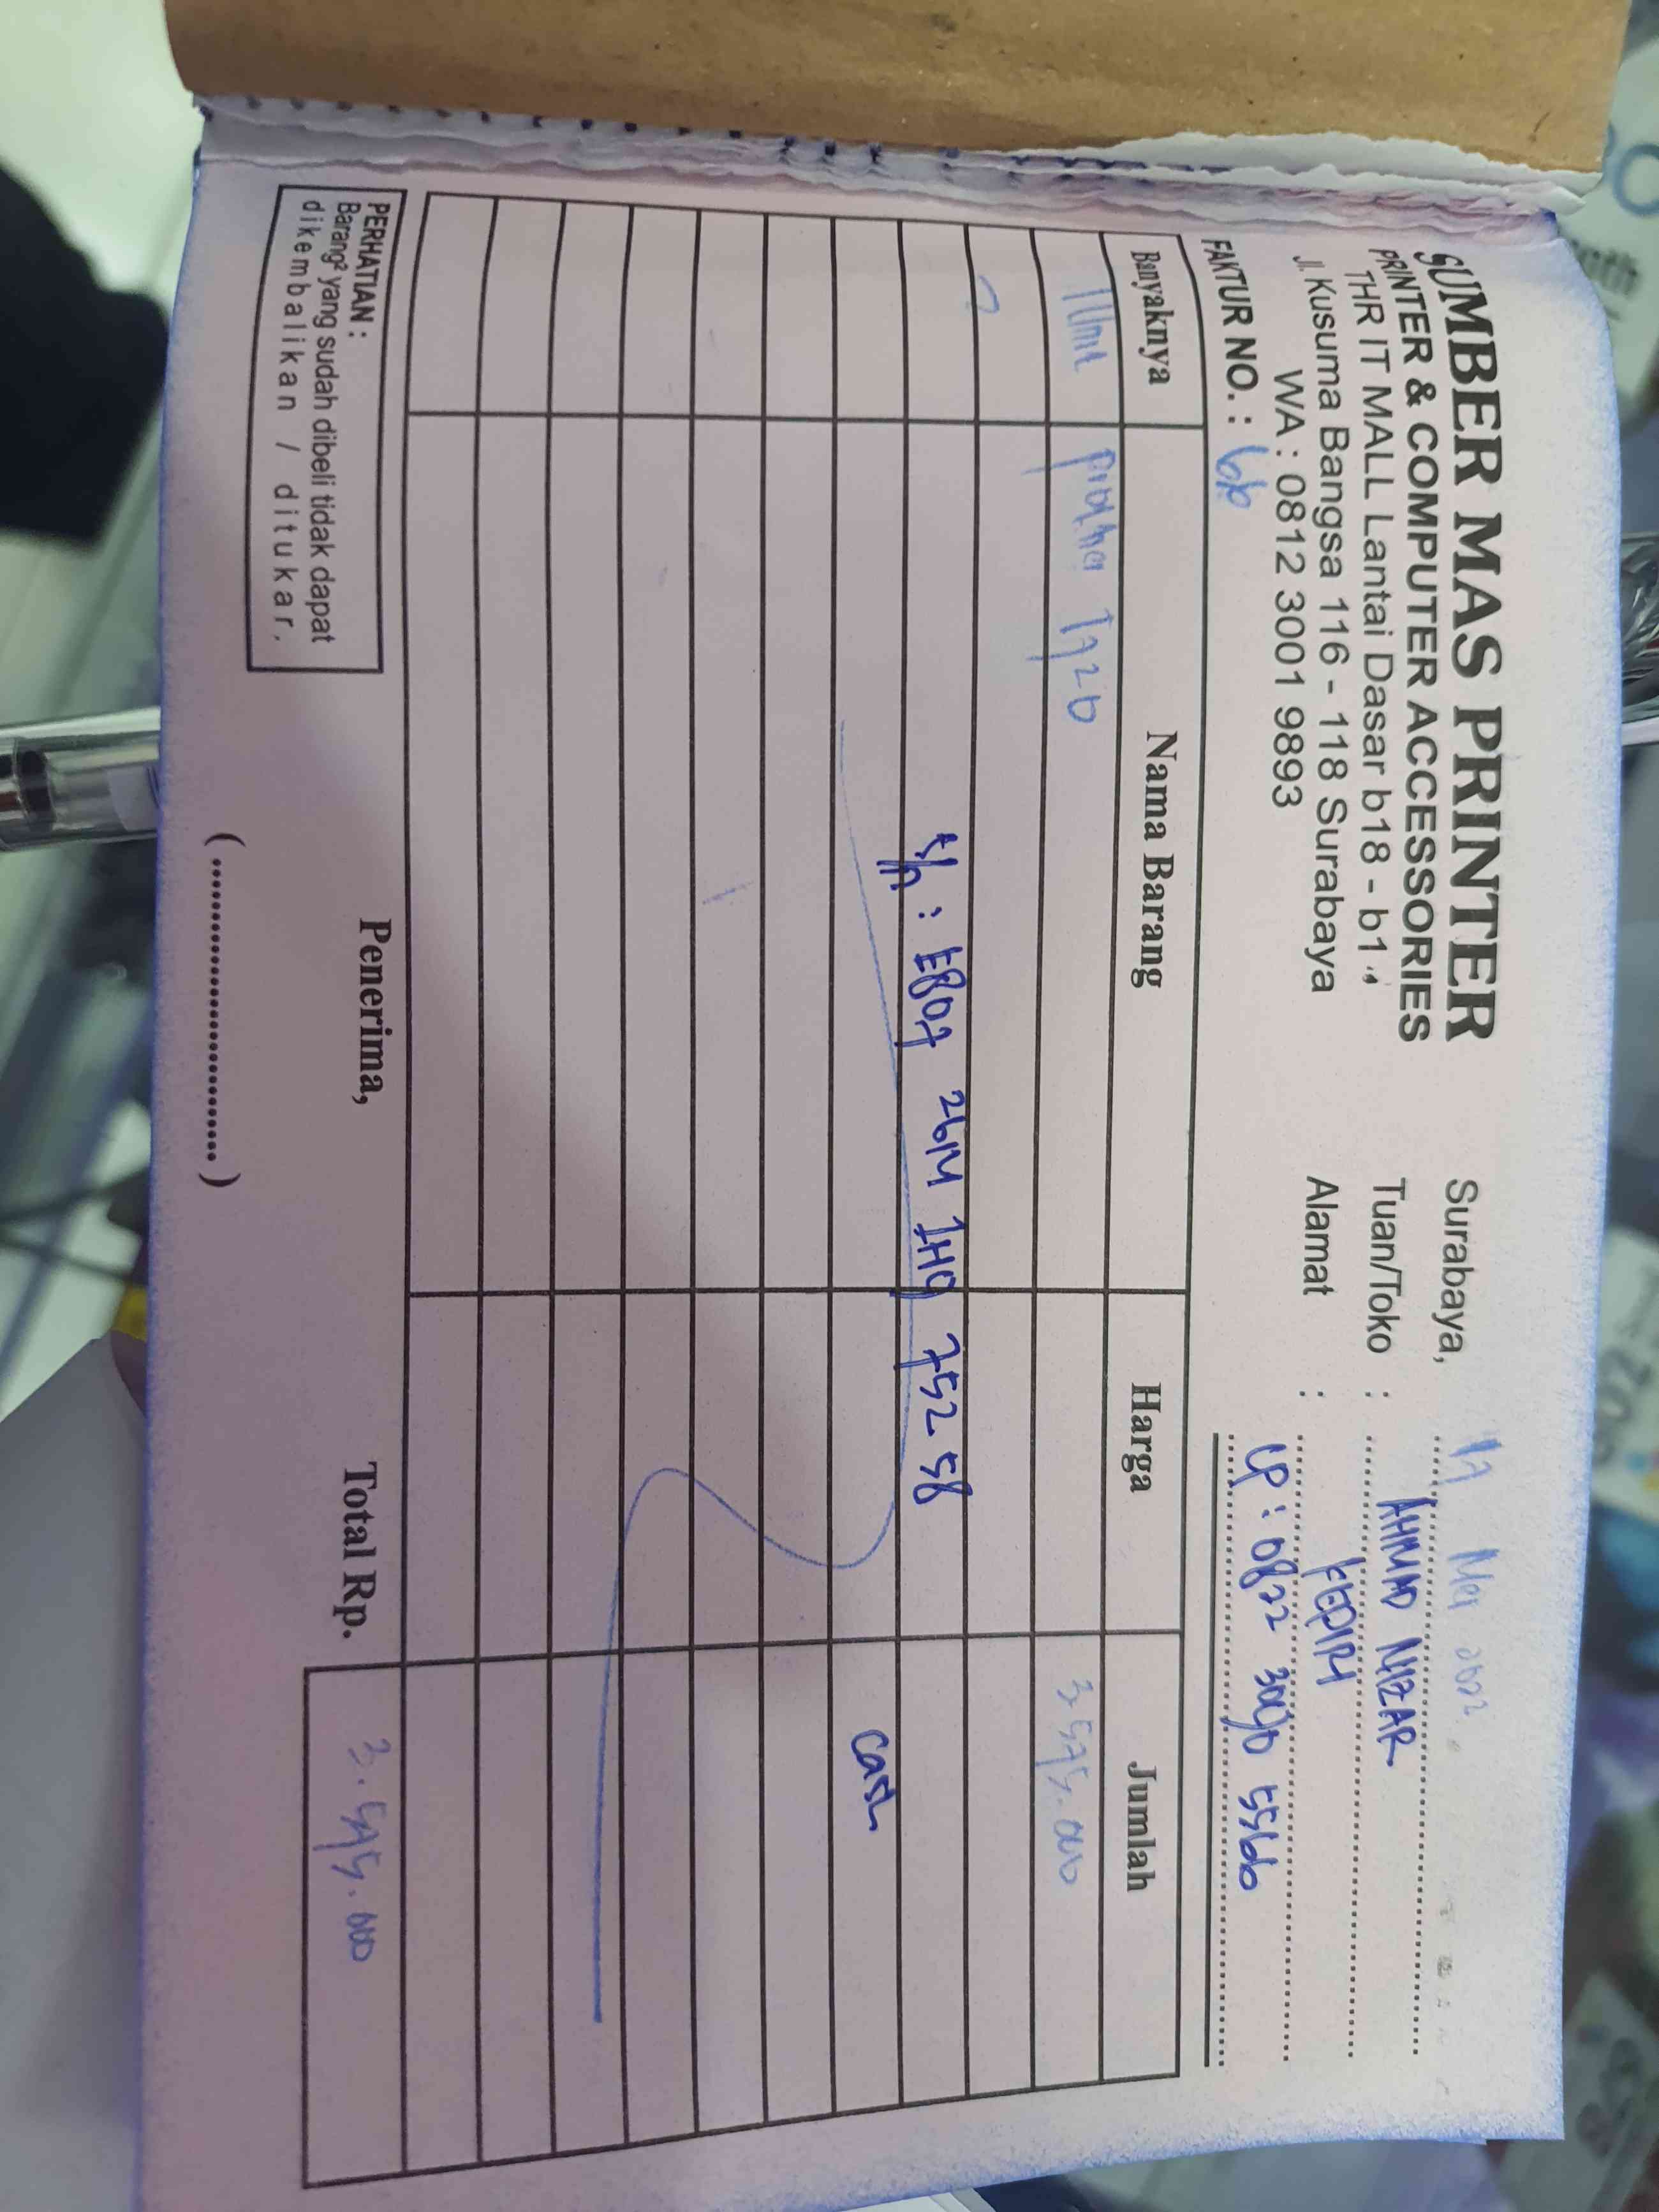 SUMBER MAS PRINTER
PRINTER & COMPUTER ACCESSORIES
THR IT MALL Lantai Dasar b18 - b1
Jl. Kusuma Bangsa 116 - 118 Surabaya
WA : 0812 3001 9893
FAKTUR NO. :
Surabaya, 17 Mei 2022
Tuan/Toko : AHMAD NIZAR
Alamat : KEDIRI
CP :
Banyaknya Nama Barang Harga Jumlah
1 Unit 3.575.000
s/n : E807 26M 1H9 752 58
Cash
PERHATIAN :
Barang² yang sudah dibeli tidak dapat
dikembalikan / ditukar.
Penerima,
(........................)
Total Rp. 3.575.000